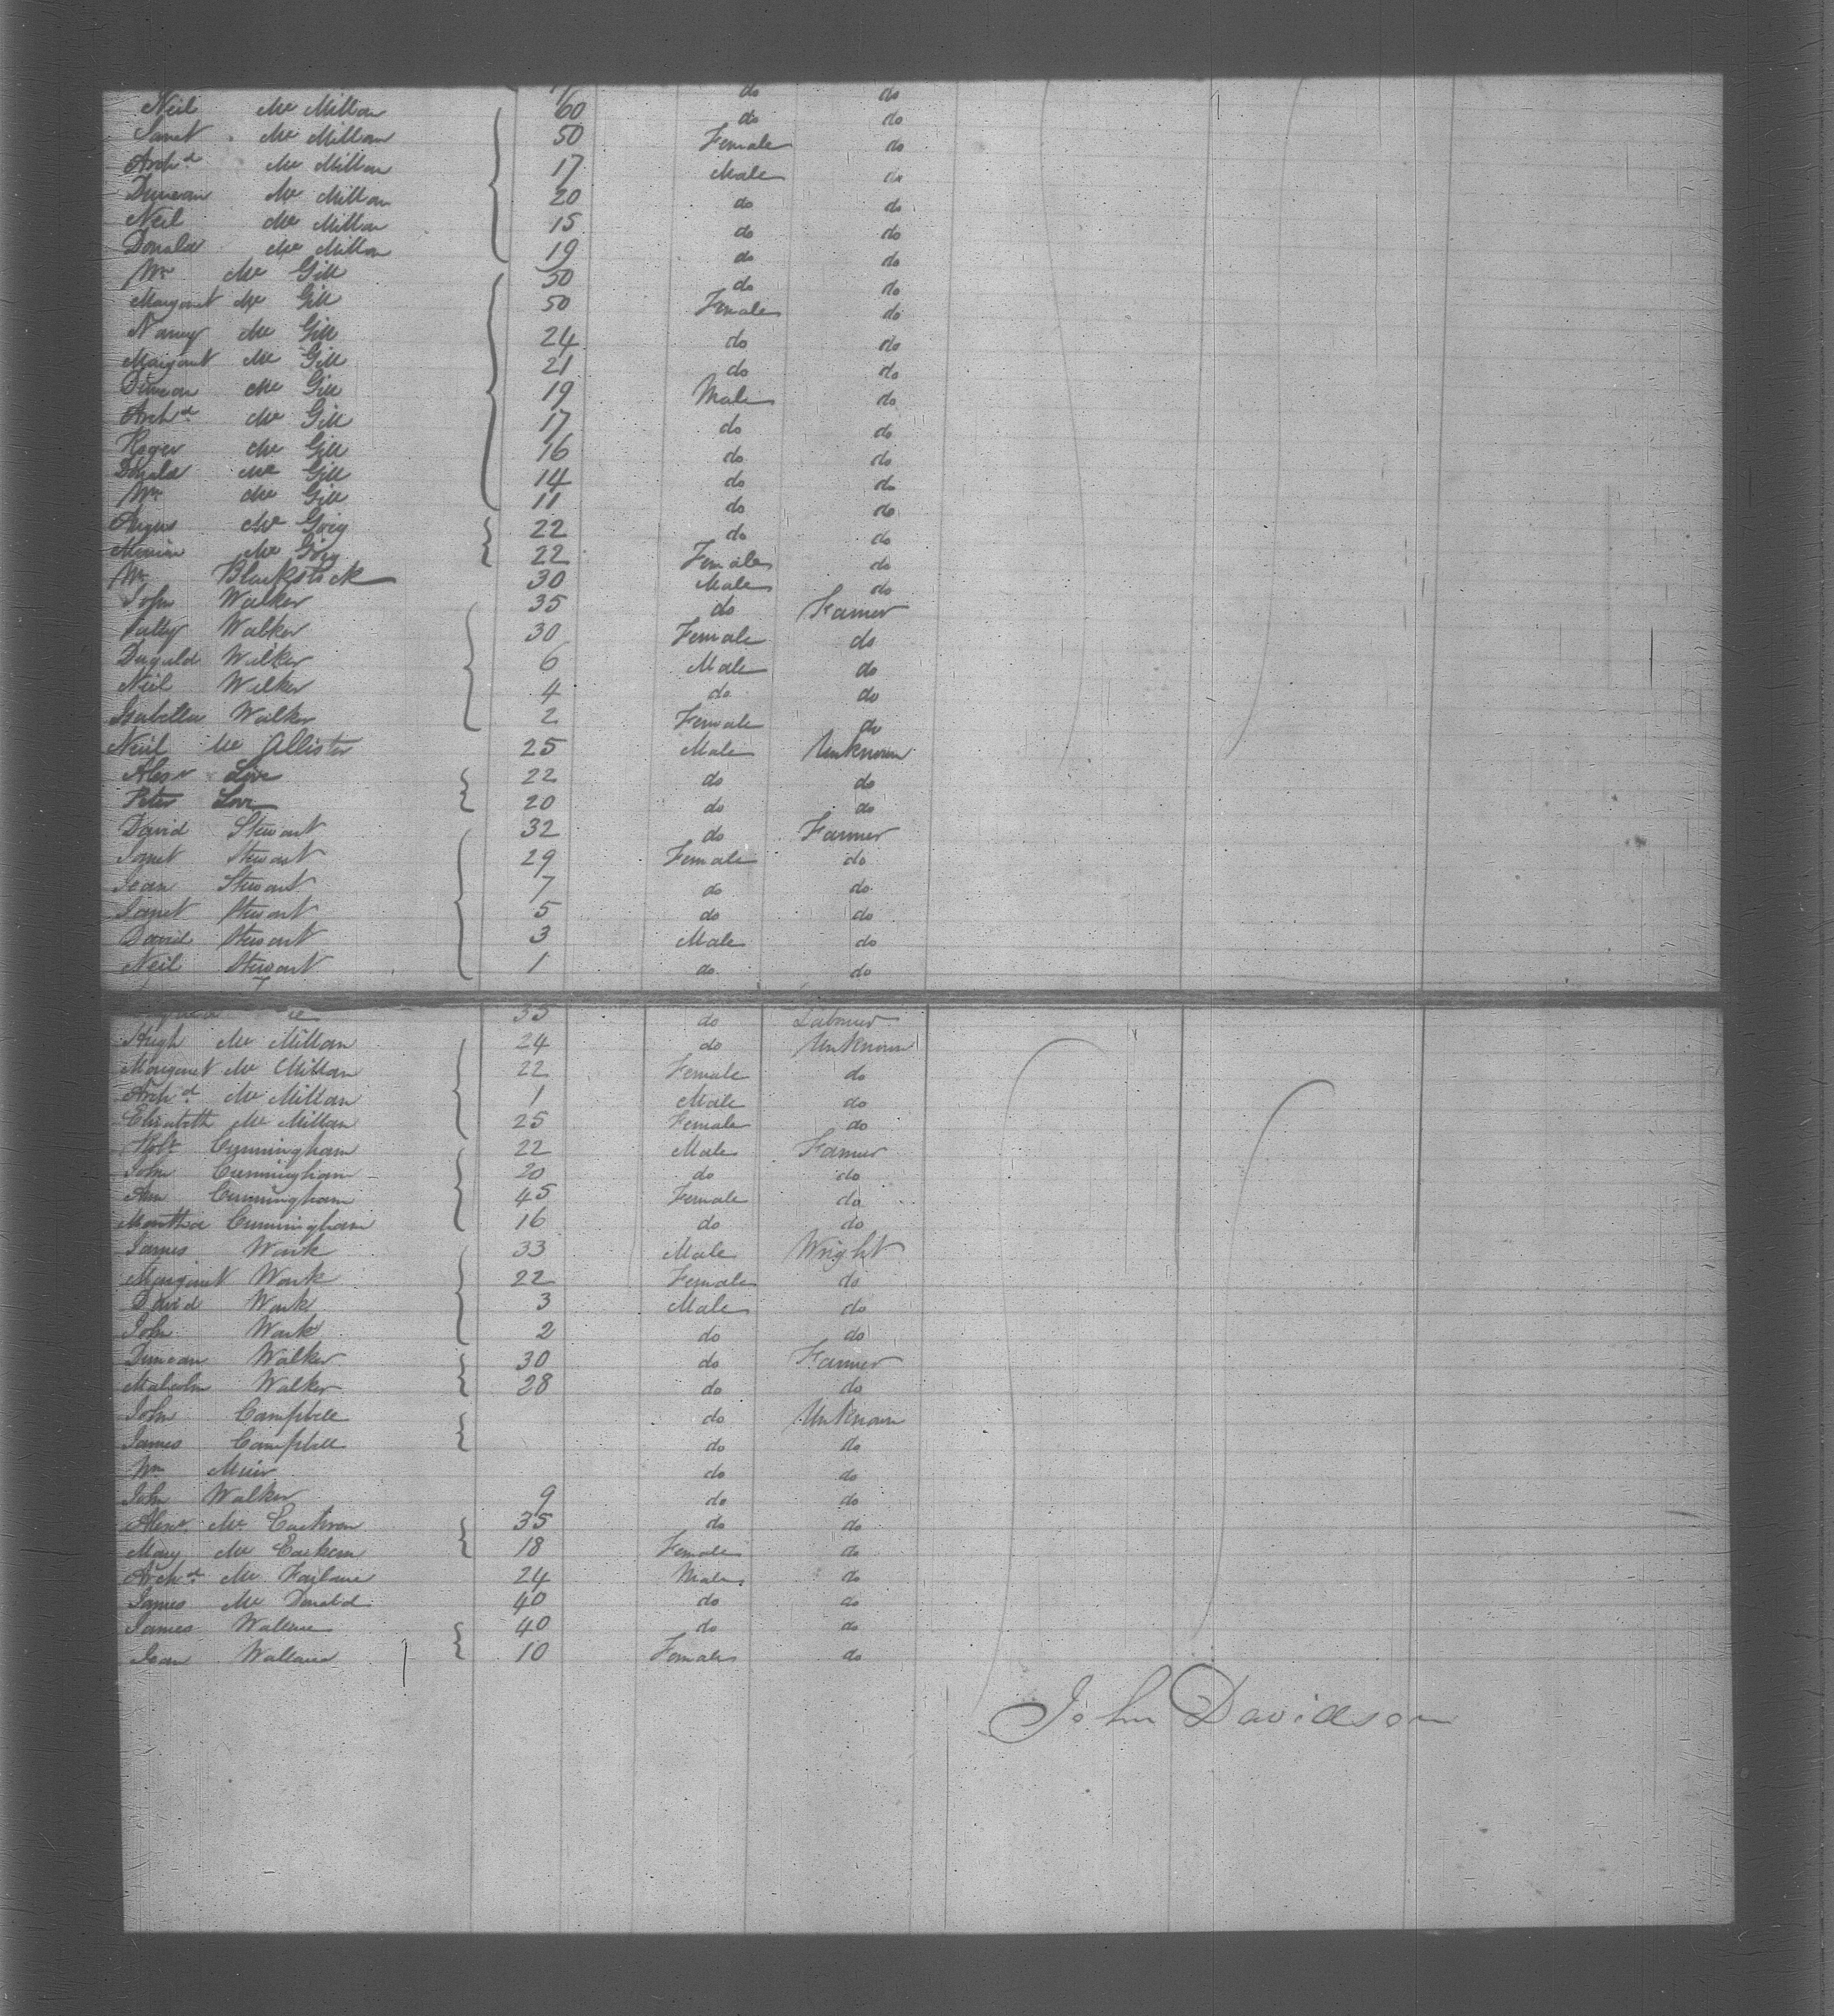 do do
Neil Mc Millan 60 do do
Janet Mc Millan 50 Female do
Archd Mc Millan 17 Male do
Duncan Mc Millan 20 do do
Neil Mc Millan 15 do do
Donald Mc Millan 19 do do
Wm Mc Gill 50 do do
Margaret Mc Gill 50 Female do
Nancy Mc Gill 24 do do
Margaret Mc Gill 21 do do
Duncan Mc Gill 19 Male do
Archd Mc Gill 17 do do
Roger Mc Gill 16 do do
Donald Mc Gill 14 do do
Wm Mc Gill 11 do do
Angus Mc 22 do do
Mc 22 Female do
Wm Blackstock 30 Male do
John Walker 35 do Farmer
Walker 30 Female do
Dugald Walker 6 Male do
Neil Walker 4 do do
Isabella Walker 2 Female do
Neil Mc Allister 25 Male Unknown
Alexr Love 22 do do
Peter Love 20 do do
David Stewart 32 do Farmer
Janet Stewart 29 Female do
Jean Stewart 7 do do
Janet Stewart 5 do do
David Stewart 3 Male do
Neil Stewart 1 do do
35 do Labourer
Hugh Mc Millan 24 do Unknown
Margaret Mc Millan 22 Female do
Archd Mc Millan 1 Male do
Elizabeth Mc Millan 25 Female do
Robt Cunningham 22 Male Farmer
John Cunningham 20 do do
Ann Cunningham 45 Female do
Martha Cunningham 16 do do
James Wark 33 Male Wright
Margaret Wark 22 Female do
David Wark 3 Male do
John Wark 2 do do
Duncan Walker 30 do Farmer
Malcolm Walker 28 do do
John Campbell do Unknown
James Campbell do do
Wm Muir do do
John Walker 9 do do
Alexr Mc Eachran 35 do do
Mary Mc Eachern 18 Female do
Archd Mc Farlane 24 Male do
James Mc Donald 40 do do
James Wallace 40 do do
Jean Wallace 10 Female do
John Davidson